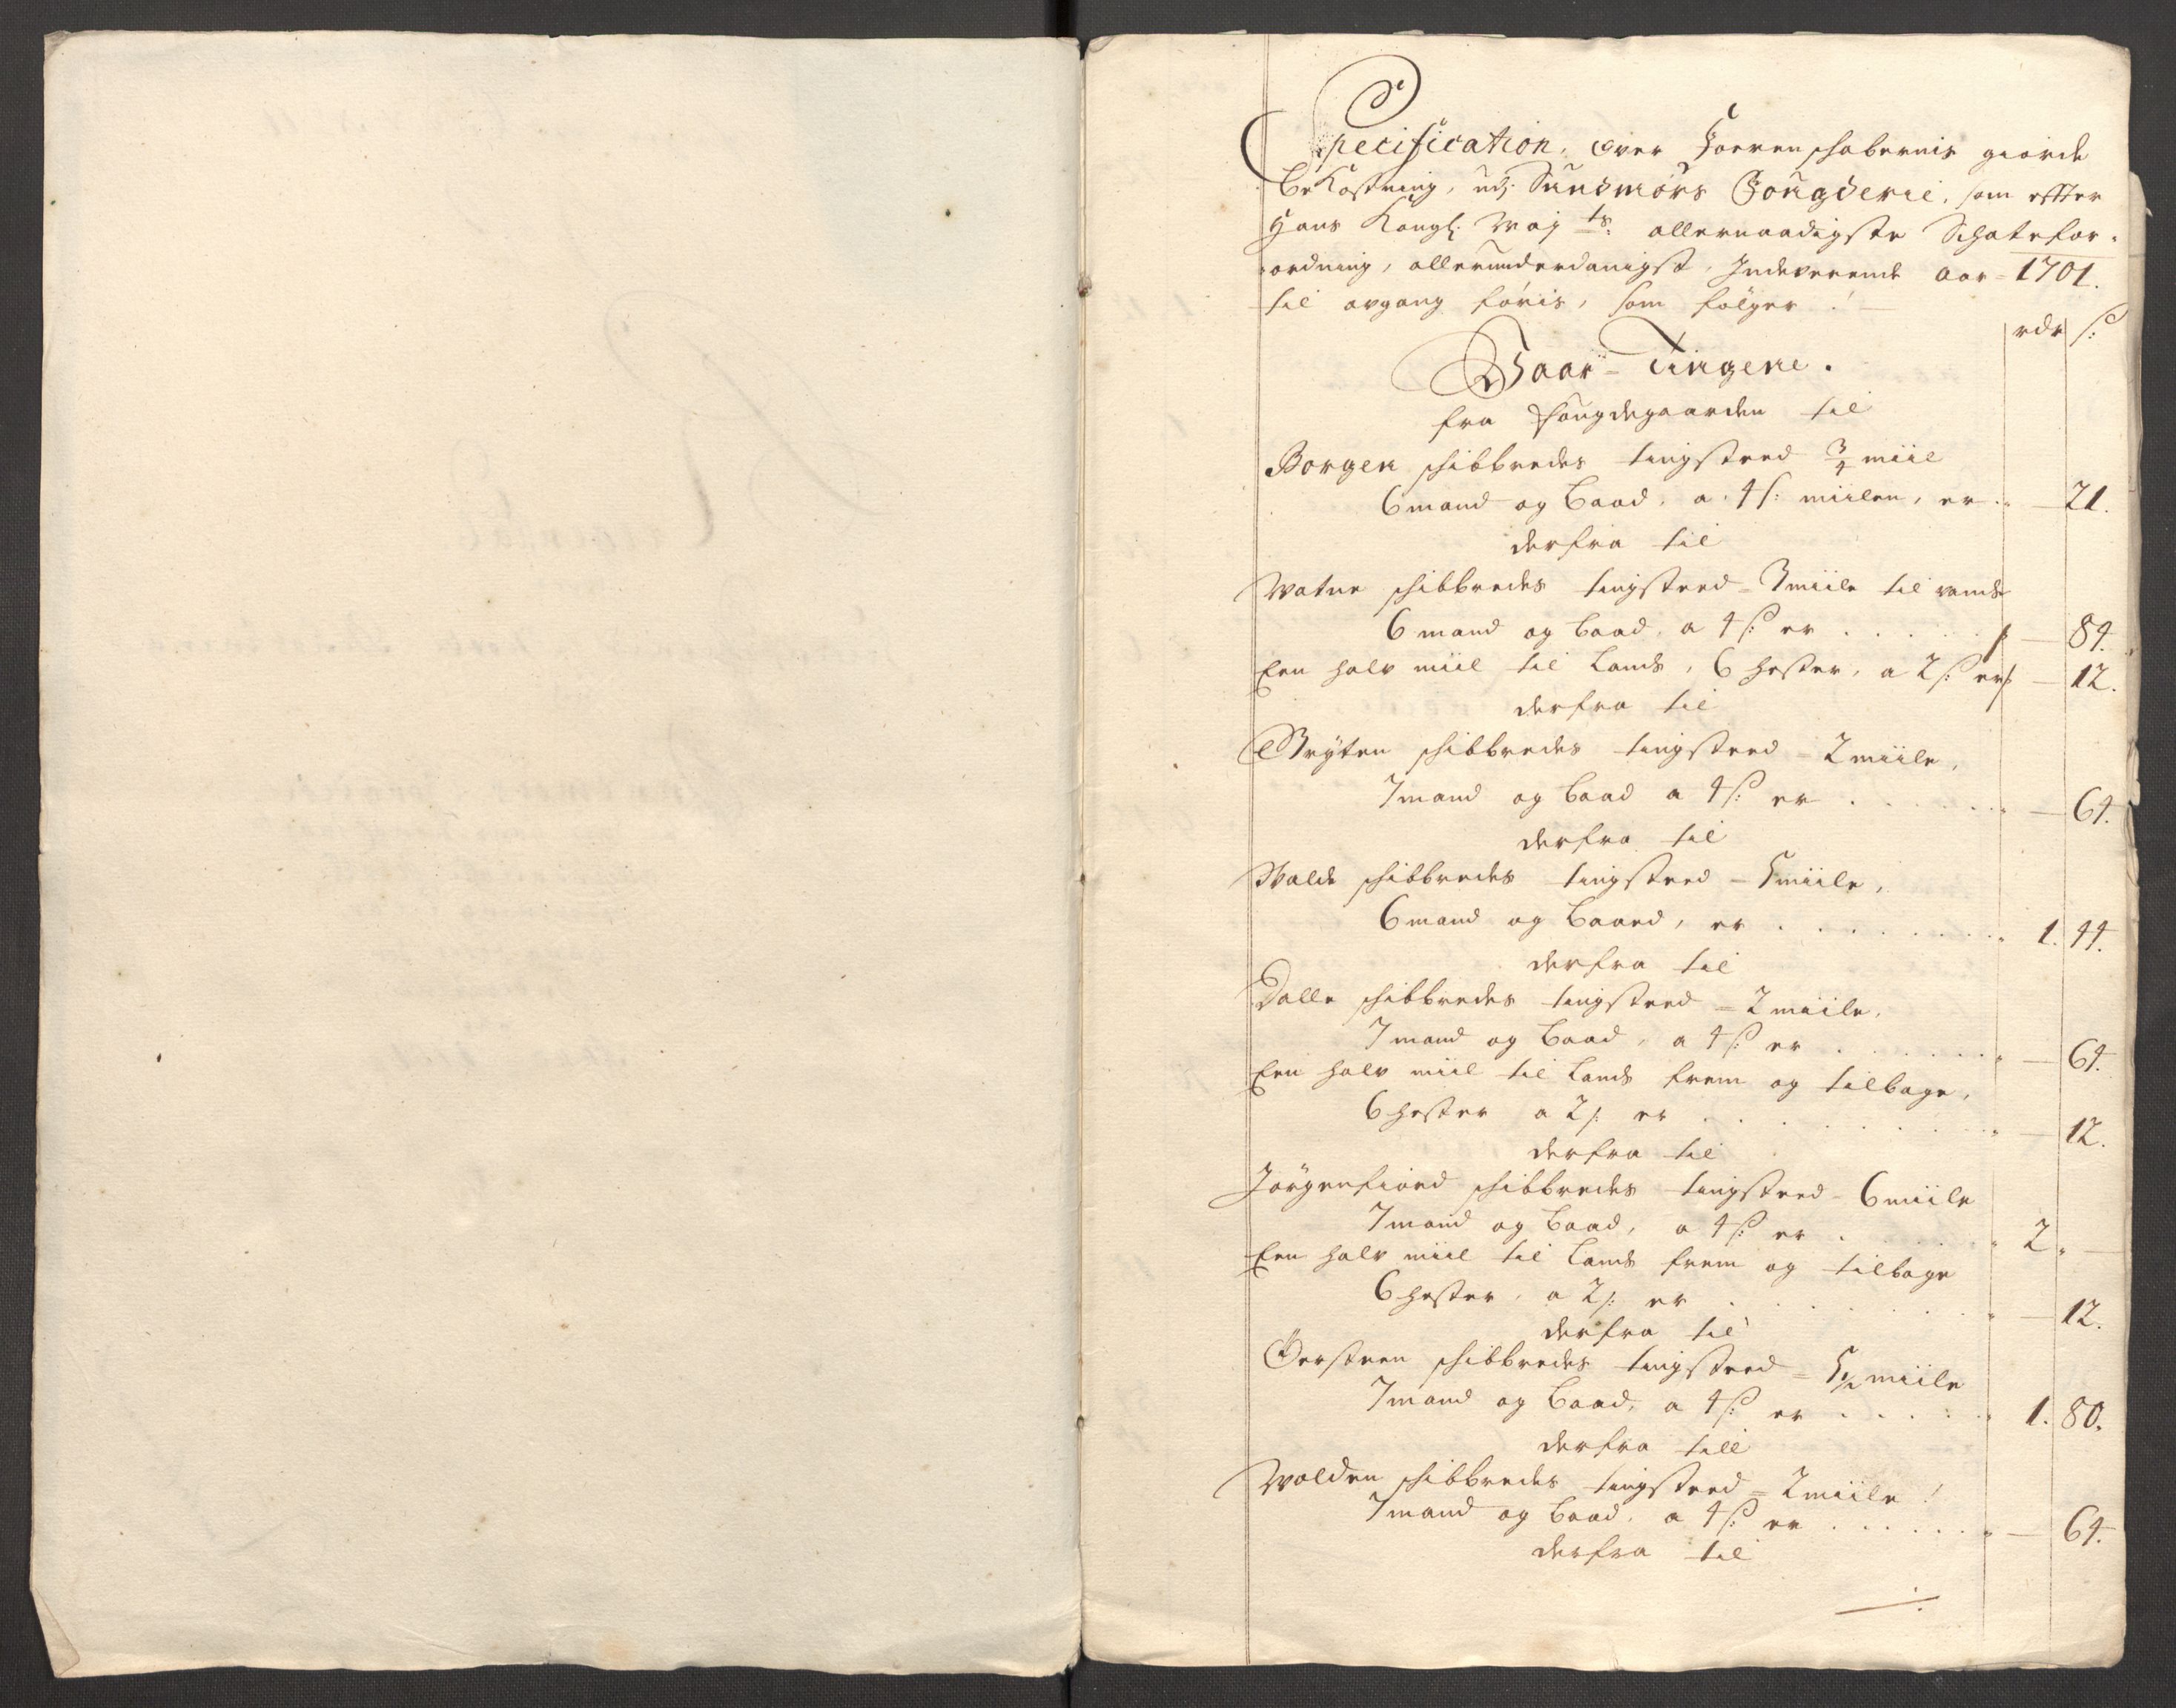 Specification, over Foerenschabernis giorde
bekostning, udj Sundmørs Fougderie, som effter
Hans Kongl: Maj ts: allernaadigste Schatefor-
ordning, allerunderdanigst, Indeverende aar 1701.
til afgang føris, som følger !
rdr ß:
Vaar-Tingene.
fra fougdegaarden til
Borgen schibbredes tingsteed ¾ miil
6 mand og baad. a. 4 ß: miilen, er — 21.
derfra til
Watne schibbredes tingsteed = 3 miile til vands
6 mand og baad. a 4 ß: er . . . . . — 84.
Een halv miil til Lands, 6 hester, a 2 ß: er — 12.
derfra til
Gryten schibbredes tingsteed = 2 miile,
7 mand og baad a 4 ß: er . . . . . — 64.
derfra til
Walde schibbredes tingsteed = 5 miile,
6 mand og baaed, er . . . . . . . 1. 44.
derfra til
Dalle schibbredes tingsteed = 2 miile,
7 mand og baad, a 4 ß: er . . . . . — 64.
Een halv miil til Lands frem og tilbage,
6 hester a 2 ß: er . . . . . . . — 12.
derfra til
Jørgenfiord schibbredes tingsteed = 6 miile
7 mand og baad, a 4 ß: er . . . . . 2. —
Een halv miil til Lands frem og tilbage
6 hester, a 2 ß: er . . . . . . . — 12.
derfra til
Øersteen schibbredes tingsteed = 5½ miile
7 mand og baad, a 4 ß: er . . . . . 1. 80.
derfra till
Wolden schibbredes tingsteed = 2 miile !
7 mand og baad. a 4 ß: er . . . . . . — 64.
derfra til